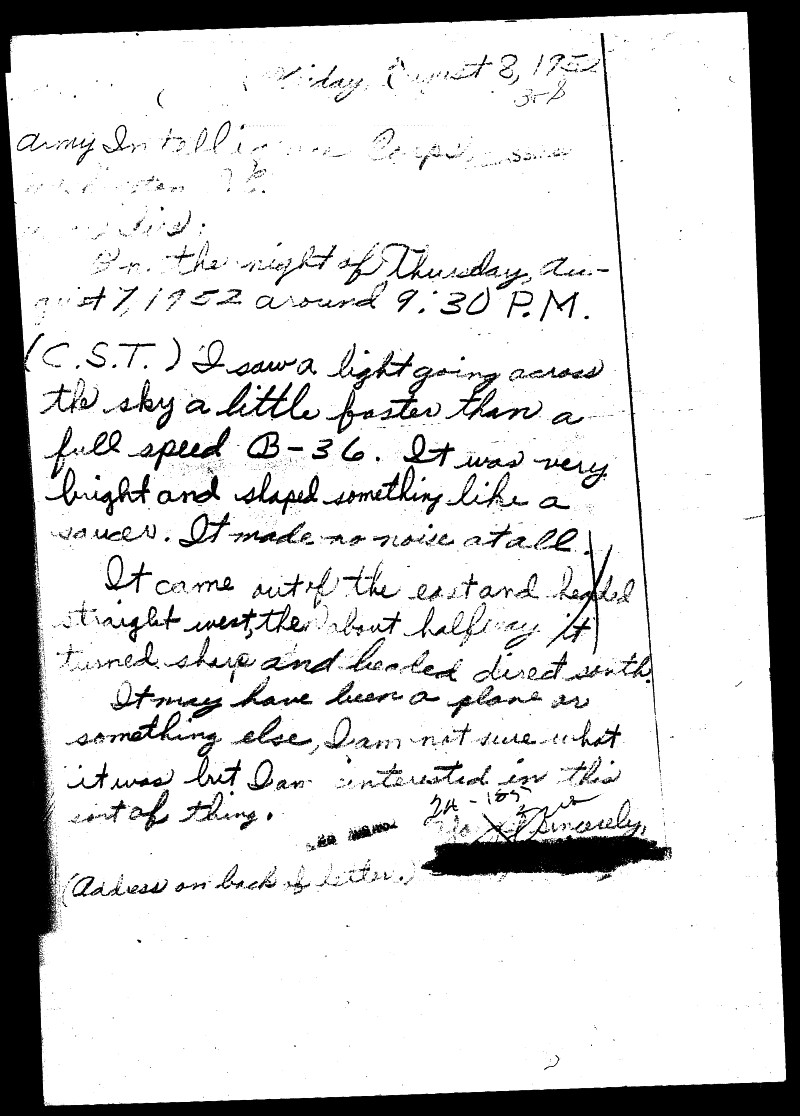 Friday, August 8, 1952
Army Intelligence Corps,
Sir:
On the night of Thursday, Au-
gust 7, 1952 around 9:30 P.M.
(C.S.T.) I saw a light going across
the sky a little faster than a
full speed B-36. It was very
bright and shaped something like a
saucer. It made no noise at all.
It came out of the east and headed
straight west, then about halfway it
turned sharp and headed direct south.
It may have been a plane or
something else, I am not sure what
it was but I am interested in this
sort of thing.
24-185
Sincerely,
(Address on back of letter.)